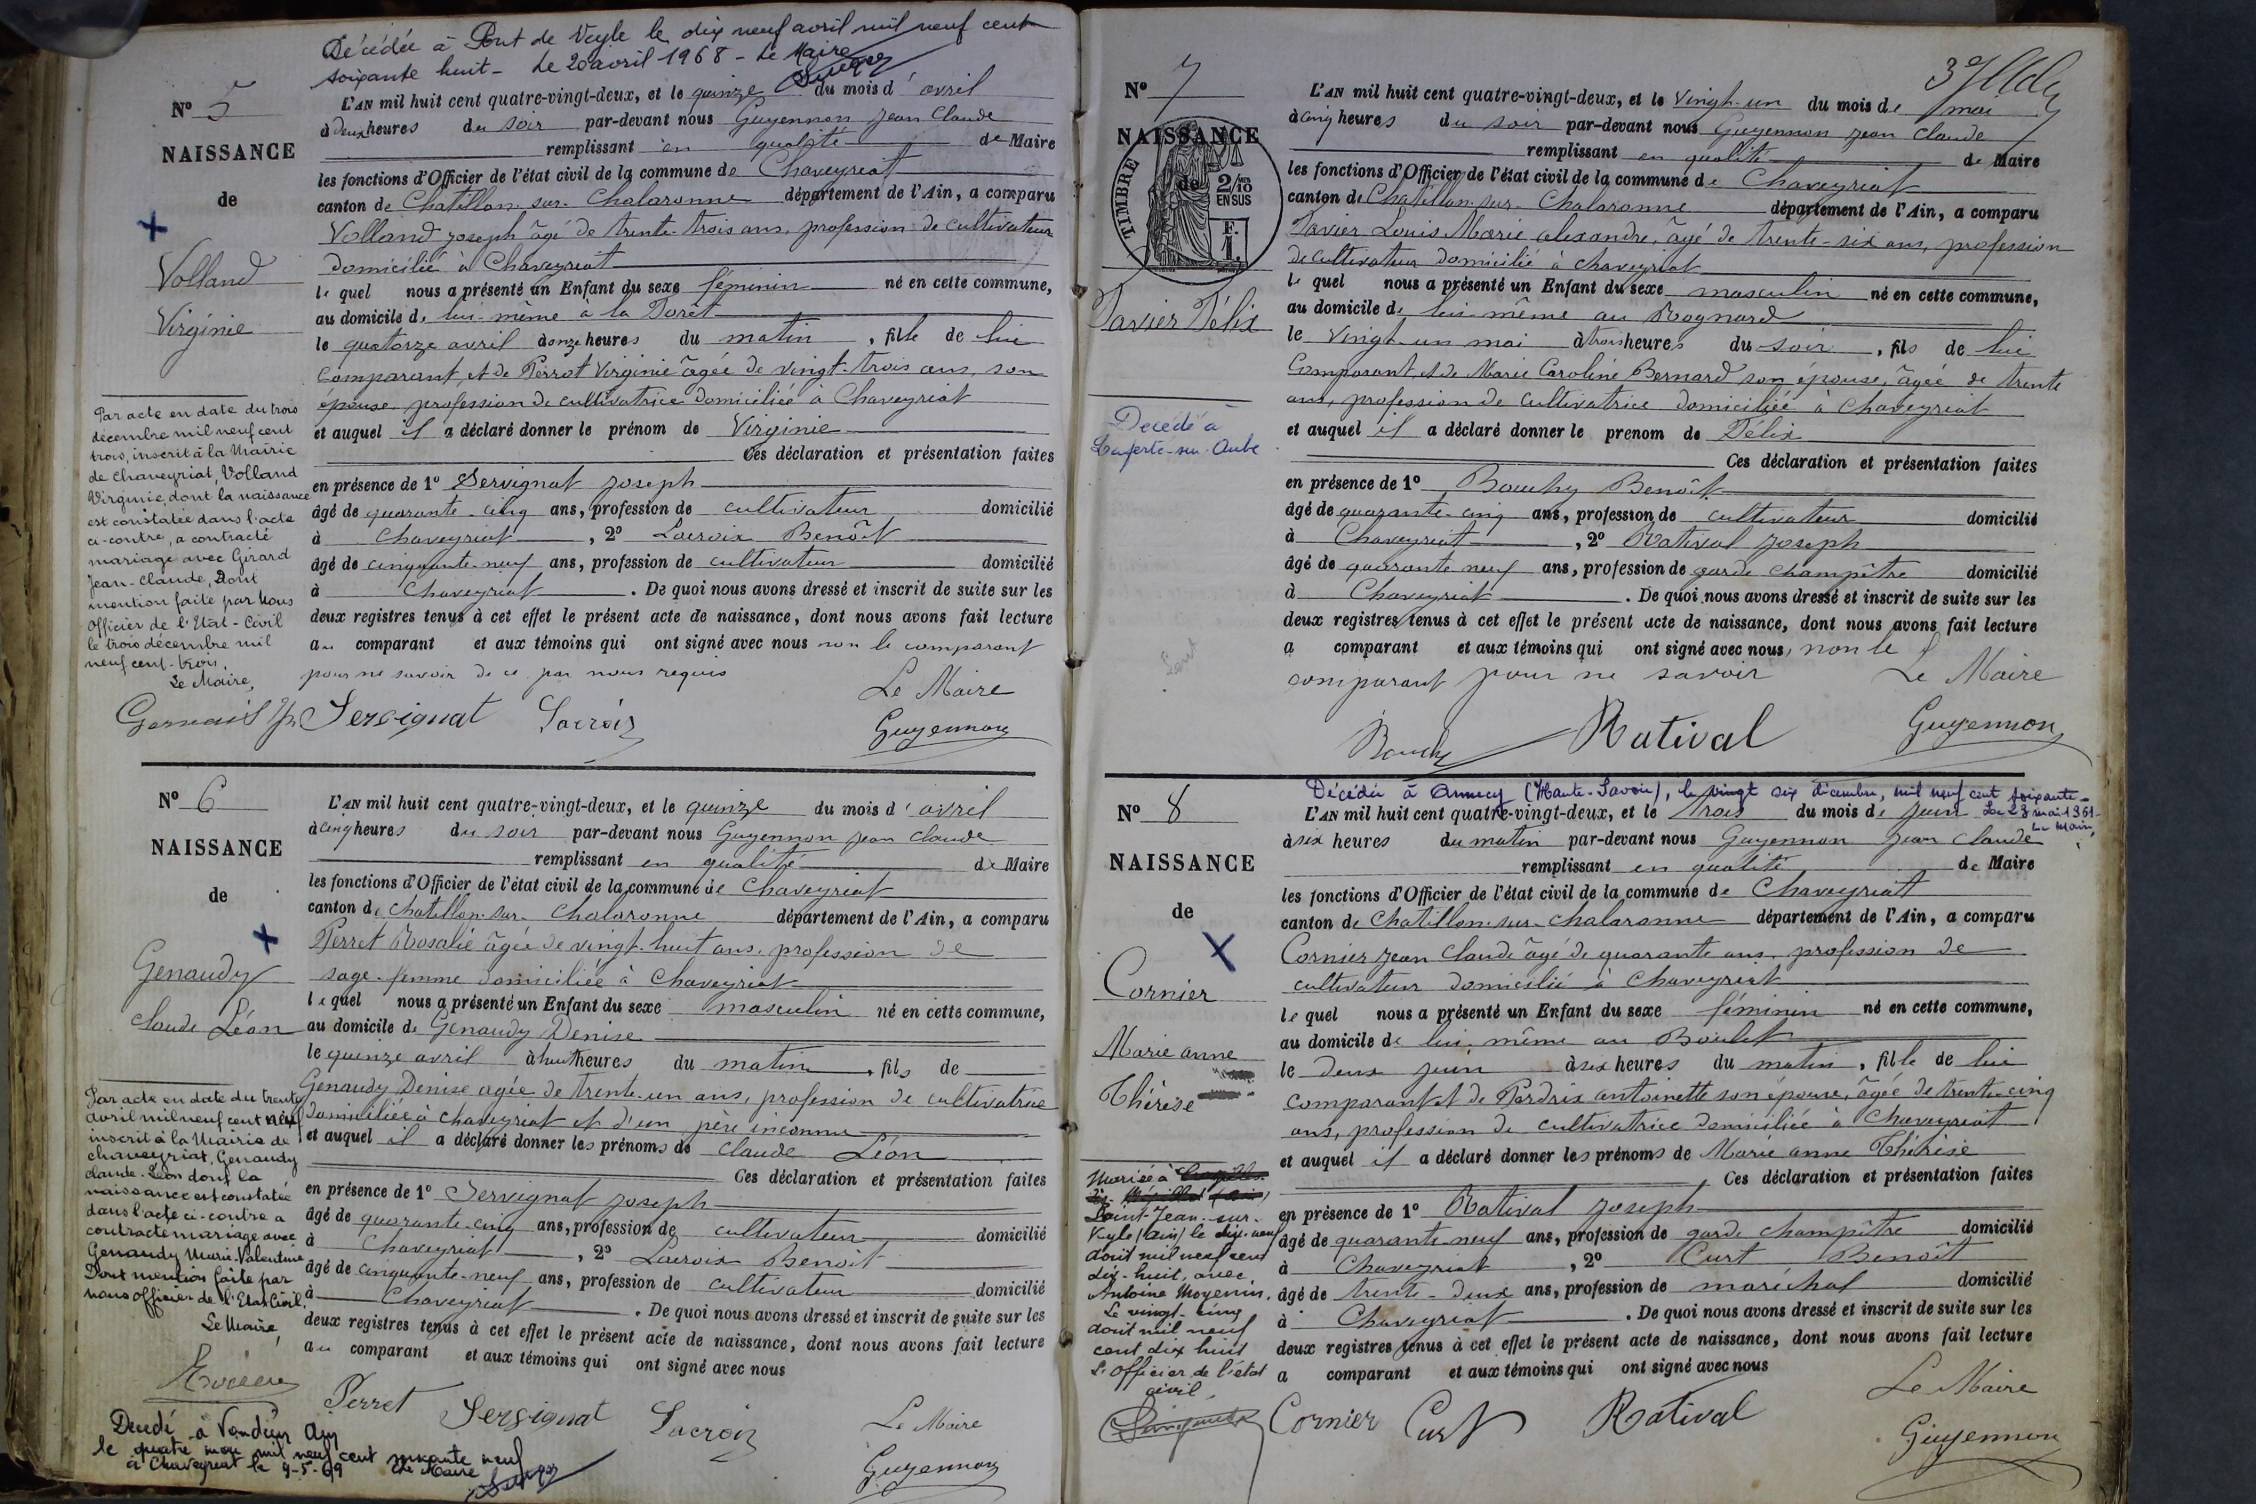 Décédée à Pont de Veyle le dix neuf avril mil neuf cent
soixante huit - le 20 avril 1968 - Le Maire
N° 5
NAISSANCE
de
Volland
Virginie
L'AN mil huit cent quatre-vingt-deux, et le quinze du mois d'avril
à deux heures du soir par-devant nous Guyennon Jean Claude
remplissant en qualité de Maire
les fonctions d'Officier de l'état civil de la commune de Chaveyriat
canton de Chatillon-sur-Chalaronne département de l'Ain, a comparu
Volland Joseph âgé de trente-trois ans, profession de cultivateur
domicilié à Chaveyriat
le quel nous a présenté un Enfant du sexe féminin né en cette commune,
au domicile de lui-même à la Foret
le quatorze avril à onze heures du matin, fille de lui
comparant, et de Perrot Virginie âgée de vingt-trois ans, son
épouse, profession de cultivatrice domiciliée à Chaveyriat
et auquel il a déclaré donner le prénom de Virginie
Ces déclaration et présentation faites
en présence de 1° Servignat Joseph
âgé de quarante-cinq ans, profession de cultivateur domicilié
à Chaveyriat, 2° Lacroix Benoît
âgé de cinquante-neuf ans, profession de cultivateur domicilié
à Chaveyriat. De quoi nous avons dressé et inscrit de suite sur les
deux registres tenus à cet effet le présent acte de naissance, dont nous avons fait lecture
au comparant et aux témoins qui ont signé avec nous non le comparant
pour ne savoir de ce par nous requis
Le Maire
Servignat Lacroix Guyennon
Par acte en date du trois
décembre mil neuf cent
trois, inscrit à la Mairie
de Chaveyriat, Volland
Virginie, dont la naissance
est constatée dans l'acte
ci-contre, a contracté
mariage avec Girard
Jean-Claude, Dont
mention faite par Nous
Officier de l'Etat-Civil
le trois décembre mil
neuf cent-trois.
Le Maire,
N° 6
NAISSANCE
de
Genaudy
Claude Léon
L'AN mil huit cent quatre-vingt-deux, et le quinze du mois d'avril
à cinq heures du soir par-devant nous Guyennon Jean Claude
remplissant en qualité de Maire
les fonctions d'Officier de l'état civil de la commune de Chaveyriat
canton de Chatillon-sur-Chalaronne département de l'Ain, a comparu
Perret Rosalie âgée de vingt-huit ans, profession de
sage-femme domiciliée à Chaveyriat
le quel nous a présenté un Enfant du sexe masculin né en cette commune,
au domicile de Genaudy Denise
le quinze avril à huit heures du matin, fils de
Genaudy Denise agée de trente-un ans, profession de cultivatrice
domiciliée à Chaveyriat et d'un père inconnu
et auquel il a déclaré donner les prénoms de Claude Léon
Ces déclaration et présentation faites
en présence de 1° Servignat Joseph
âgé de quarante-cinq ans, profession de cultivateur domicilié
à Chaveyriat, 2° Lacroix Benoit
âgé de cinquante-neuf ans, profession de cultivateur domicilié
à Chaveyriat. De quoi nous avons dressé et inscrit de suite sur les
deux registres tenus à cet effet le présent acte de naissance, dont nous avons fait lecture
au comparant et aux témoins qui ont signé avec nous
Perret Servignat Lacroix Le Maire
Guyennon
Par acte en date du trente
avril mil neuf cent neuf
inscrit à la Mairie de
Chaveyriat, Genaudy
Claude-Léon dont la
naissance est constatée
dans l'acte ci-contre a
contracté mariage avec
Genaudy Marie-Valentine
Dont mention faite par
nous officier de l'Etat Civil.
Le Maire,
Decedé à Vandeins Ain
le quatre mai mil neuf cent soixante neuf
à Chaveyriat le 9-5-69 Le Maire
N° 7
NAISSANCE
de
TIMBRE
2/10 EN SUS
F. 1.
Favier Félix
Decédé à
Laferté-sur-Aube
L'AN mil huit cent quatre-vingt-deux, et le vingt-un du mois de mai
à cinq heures du soir par-devant nous Guyennon Jean Claude
remplissant en qualité de Maire
les fonctions d'Officier de l'état civil de la commune de Chaveyriat
canton de Chatillon-sur-Chalaronne département de l'Ain, a comparu
Favier Louis Marie alexandre, âgé de trente-six ans, profession
de cultivateur domicilié à Chaveyriat
le quel nous a présenté un Enfant du sexe masculin né en cette commune,
au domicile de lui-même au Rognard
le vingt-un mai à trois heures du soir, fils de lui
Comparant, et de Marie Caroline Bernard son épouse, âgée de trente
ans, profession de cultivatrice domiciliée à Chaveyriat
et auquel il a déclaré donner le prenom de Félix
Ces déclaration et présentation faites
en présence de 1° Bouchy Benoît
âgé de quarante-cinq ans, profession de cultivateur domicilié
à Chaveyriat, 2° Rativat Joseph
âgé de quarante-neuf ans, profession de garde champêtre domicilié
à Chaveyriat. De quoi nous avons dressé et inscrit de suite sur les
deux registres tenus à cet effet le présent acte de naissance, dont nous avons fait lecture
a comparant et aux témoins qui ont signé avec nous, non le
comparant pour ne savoir Le Maire
Bouchy Ratival Guyennon
Décédée à Annecy (Haute-Savoie), le vingt six décembre, mil neuf cent soixante-
Le 23 mai 1961-
Le Maire,
N° 8
NAISSANCE
de
Cornier
Marie anne
Thérèse
L'AN mil huit cent quatre-vingt-deux, et le trois du mois de juin
à six heures du matin par-devant nous Guyennon Jean Claude
remplissant en qualité de Maire
les fonctions d'Officier de l'état civil de la commune de Chaveyriat
canton de Chatillon-sur-Chalaronne département de l'Ain, a comparu
Cornier Jean Claude âgé de quarante ans, profession de
cultivateur domicilié à Chaveyriat
le quel nous a présenté un Enfant du sexe féminin né en cette commune,
au domicile de lui-même au Boulet
le deux juin à six heures du matin, fille de lui
comparant et de Perdrix antoinette son épouse, âgée de trente-cinq
ans, profession de cultivatrice domiciliée à Chaveyriat
et auquel il a déclaré donner les prénoms de Marie anne Thérèse
Ces déclaration et présentation faites
en présence de 1° Rativat Joseph
âgé de quarante-neuf ans, profession de garde champêtre domicilié
à Chaveyriat, 2° Curt Benoît
âgé de trente-deux ans, profession de maréchal domicilié
à Chaveyriat. De quoi nous avons dressé et inscrit de suite sur les
deux registres tenus à cet effet le présent acte de naissance, dont nous avons fait lecture
a comparant et aux témoins qui ont signé avec nous
Le Maire
Cornier Curt Rativat Guyennon
Mariée à
Saint-Jean-sur-
Veyle (Ain) le dix-neuf
août mil neuf cent
dix-huit, avec
Antoine Moyemin.
Le vingt-cinq
août mil neuf
cent dix huit
L'Officier de l'état
civil,